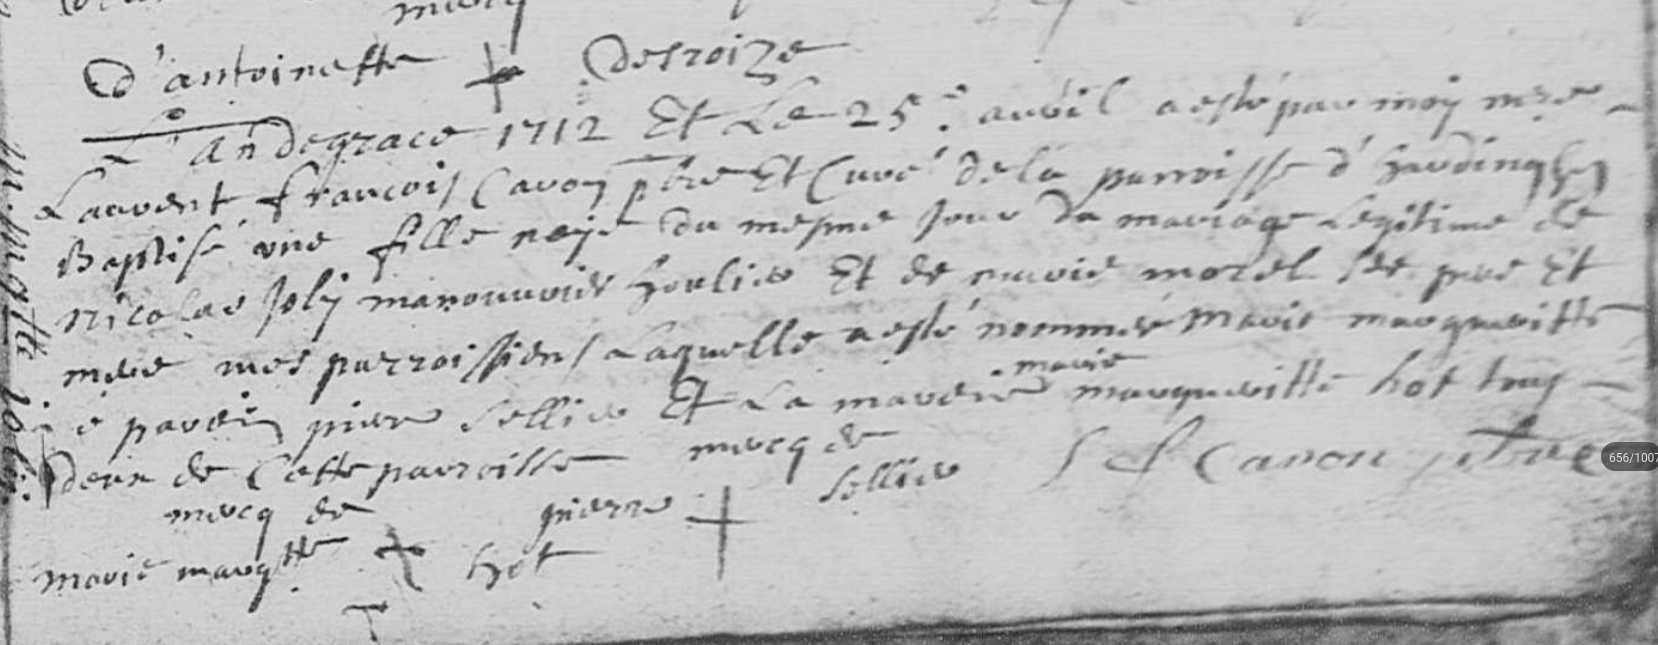 mercq
D'antoinette + Desroize
L'an de grace 1712 Et Le 25.e avril a esté par moy mre
Laurent francois Cavon pbre Et Curé de la parroisse d'hardinghen
Baptisé une fille neyë du mesme jour du mariage Legitime de
Nicolas Joly manouvrier houlier Et de marie morel ses pere Et
mere mes parroissiens Laquelle a esté nommée marie margueritte
parein pierre Sellier Et La mareine marie margueritte hot tous
deux de Cette parroisse mercq de
mercq de pierre + Sellier L f Cavon pbre
marie margtte + hot